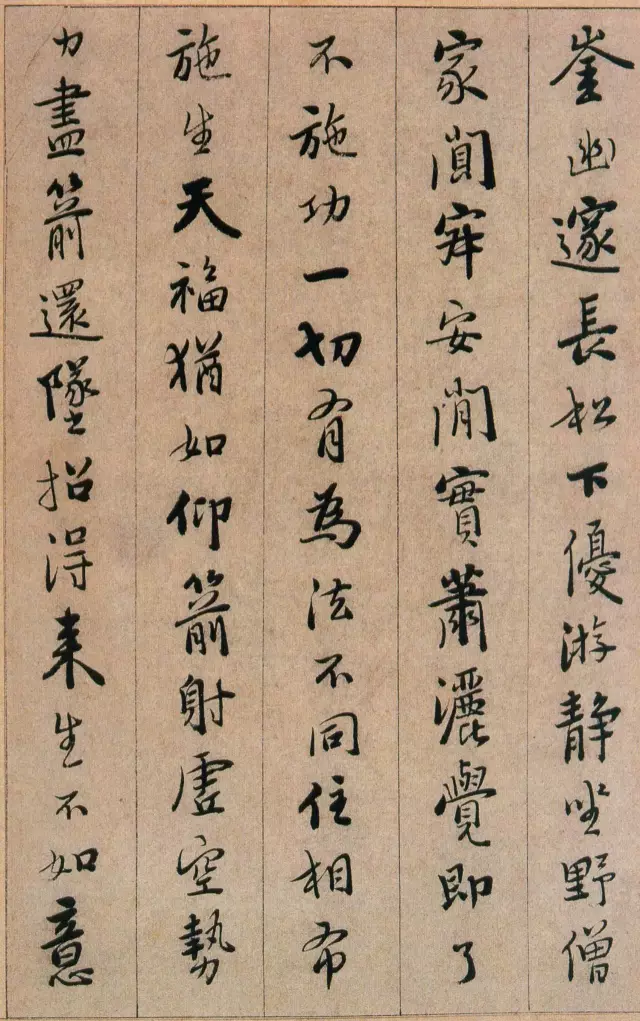 崟幽邃長松下優游静坐野僧
家闃寂安閑實蕭灑覺即了
不施功一切有為法不同住相布
施生天福猶如仰箭射虛空勢
力盡箭還墜招得来生不如意